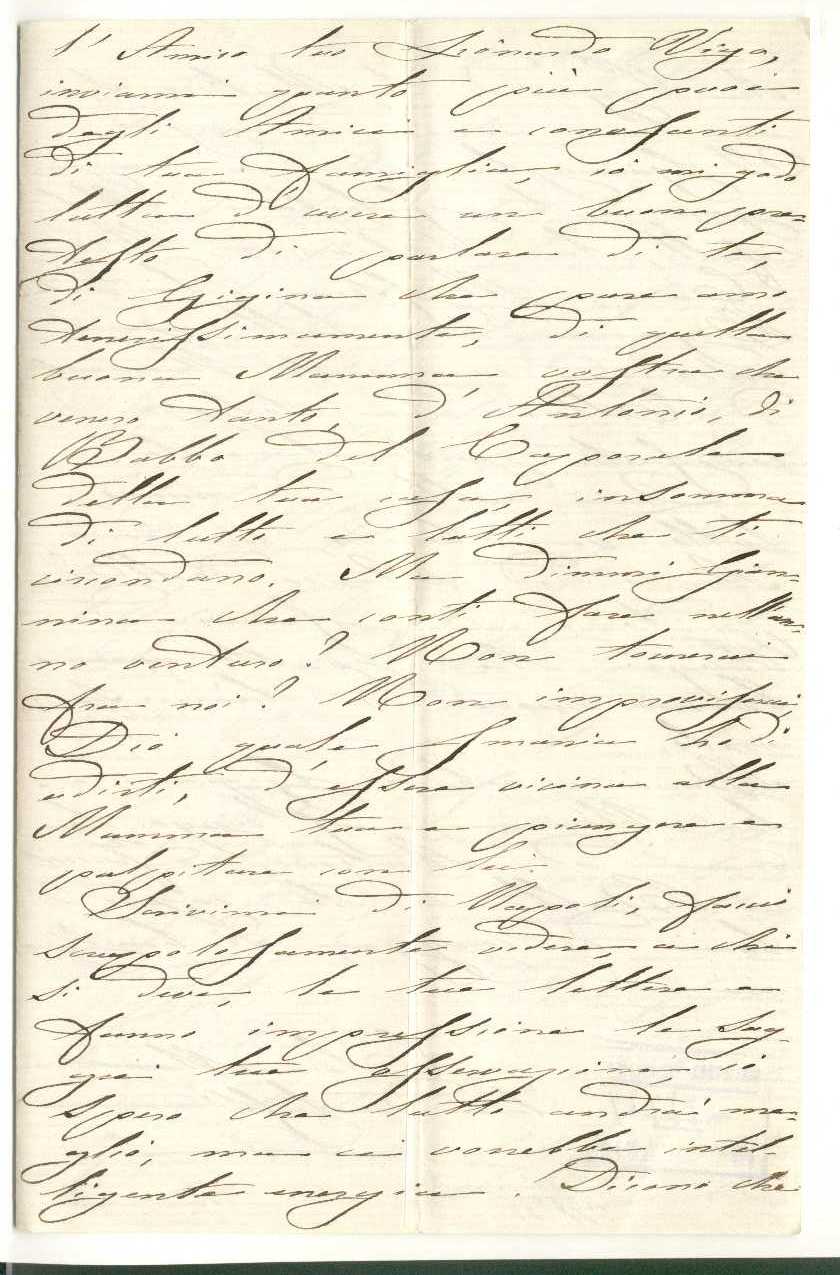 l'Amico tuo Lionardo Vigo,
inviami quanto più puoi
degli Amici e conoscenti
di tua famiglia, io mi godo
tutta d'avere un buon pre-
testo di parlare di te,
di Gigina che pure amo
tenerissimamente, di quella
buona Mamma vostra che
venero tanto, d'Antonio, di
Babbo del Caporale
della tua casa, insomma
di tutti e tutti che ti
circondano. Ma dimmi Gian-
nina che conti fare nell'an-
no venturo? Non tornerai
fra noi? Non improvviserai,
Dio quale smania ho di
udirti, d'essere vicina alla
Mamma tua e piangere e
palpitare con lei.
Scrivimi di Napoli, faccio
scrupolosamente vedere, a chi
si deve, le tue lettere e
fanno impressione le sag-
gie tue osservazioni; io
spero che tutto andrà me-
glio, ma ci vorrebbe intel-
ligente energia. Dicono che